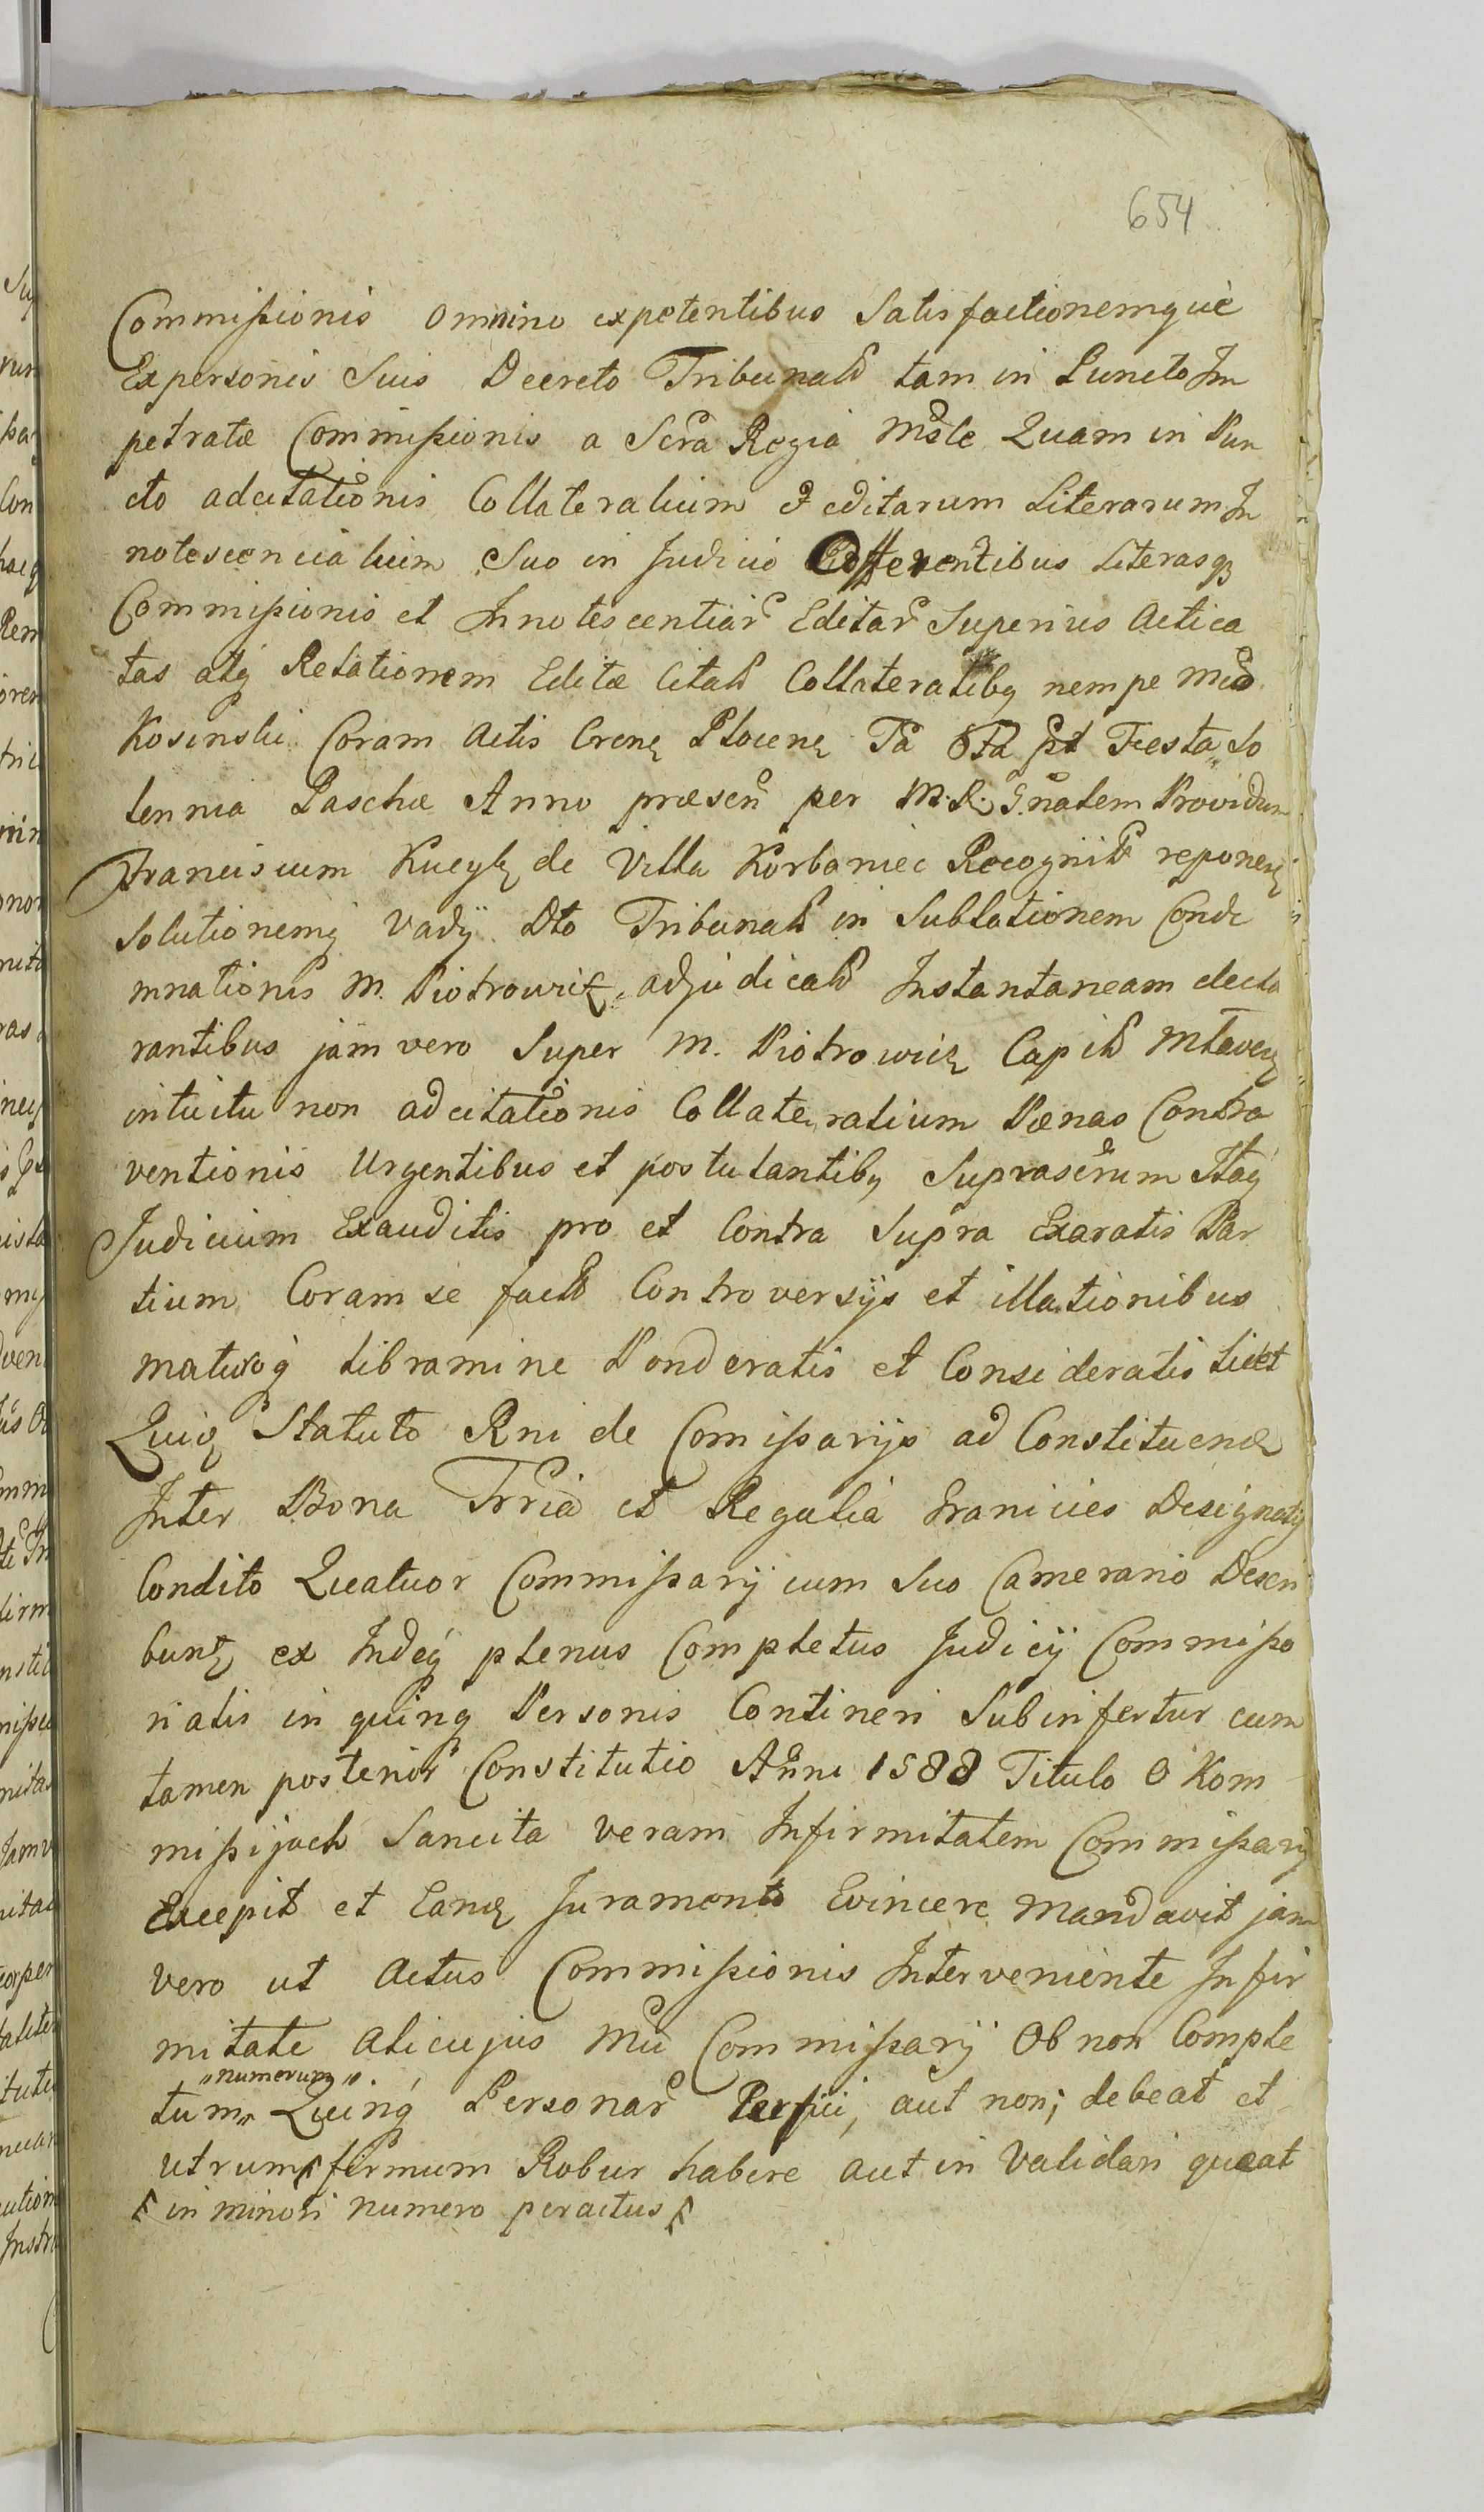 654
Commissionis omnino expetentibus Satisfactionemque
Ex personis Suis Decreto Tribunali tam in Puncto Im
petratæ Commissionis a Scra Regia Mste Quam in Pun
cto adcitationis Collateralium & editarum Literarum In
notescencialium Suo in Judicio Offerentibus Literasq
Commissionis et Innotescentiar Editar Superius Actica
tas atq Relationem Editæ Citaō Collateralibq nempe
Kosinski Coram Actis Crenę Plocenę Fa 6ta pt Festa So
lennia Paschæ Anno præsen per M. R. Gnalem Providum
Franciscum Kucyk de Villa Korbaniec Recognit reponen
Solutionemq Vadÿ Dto Tribunali in Sublationem Conde
mnationis M. Piotrowicz adjudicato Instantaneam decla
rantibus jam vero Super M. Piotrowicz Capite
intuitu non adcitationis Collateralium Pænas Contra
ventionis Urgentibus et postulantibq Suprascrum Itaq
Judicium Exauditis pro et Contra Supra Exaratis Par
tium Coram se factis Controversÿs et illationibus
maturoq libramine Ponderatis et Consideratis licet
Quiq Statuto Rni de Comissarÿs ad Constituend
Inter Bona Trria et Regalia Granicies Designatq
Condito Quatuor Commissarÿ cum Suo Camerario Descri
bunt ex Indeq plenus Completus Judicÿ Commisso
rialis in quinq Personis Contineri Subinfertur cum
tamen posterior Constitutio Anni 1588 Titulo O Kom
missÿach Sancita veram Infirmitatem Commissarÿ
Excepit et Eand Juramento Evincere Mandavit jam
vero ut Actus Commissionis Interveniente Infir
mitate alicujus Mci Commissarÿ Ob non Comple
„numerum„
tum„ Quinq Personar Perfici, aut non; debeat et
utrum firmum Robur habere aut in Validari queat
in minori numero peractus